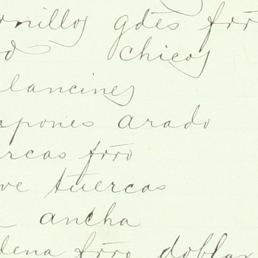 rnillos gdes frro
d chicos
lancines
apones arado
ercas frro
ve tuercas
ancha
dena frro doblar